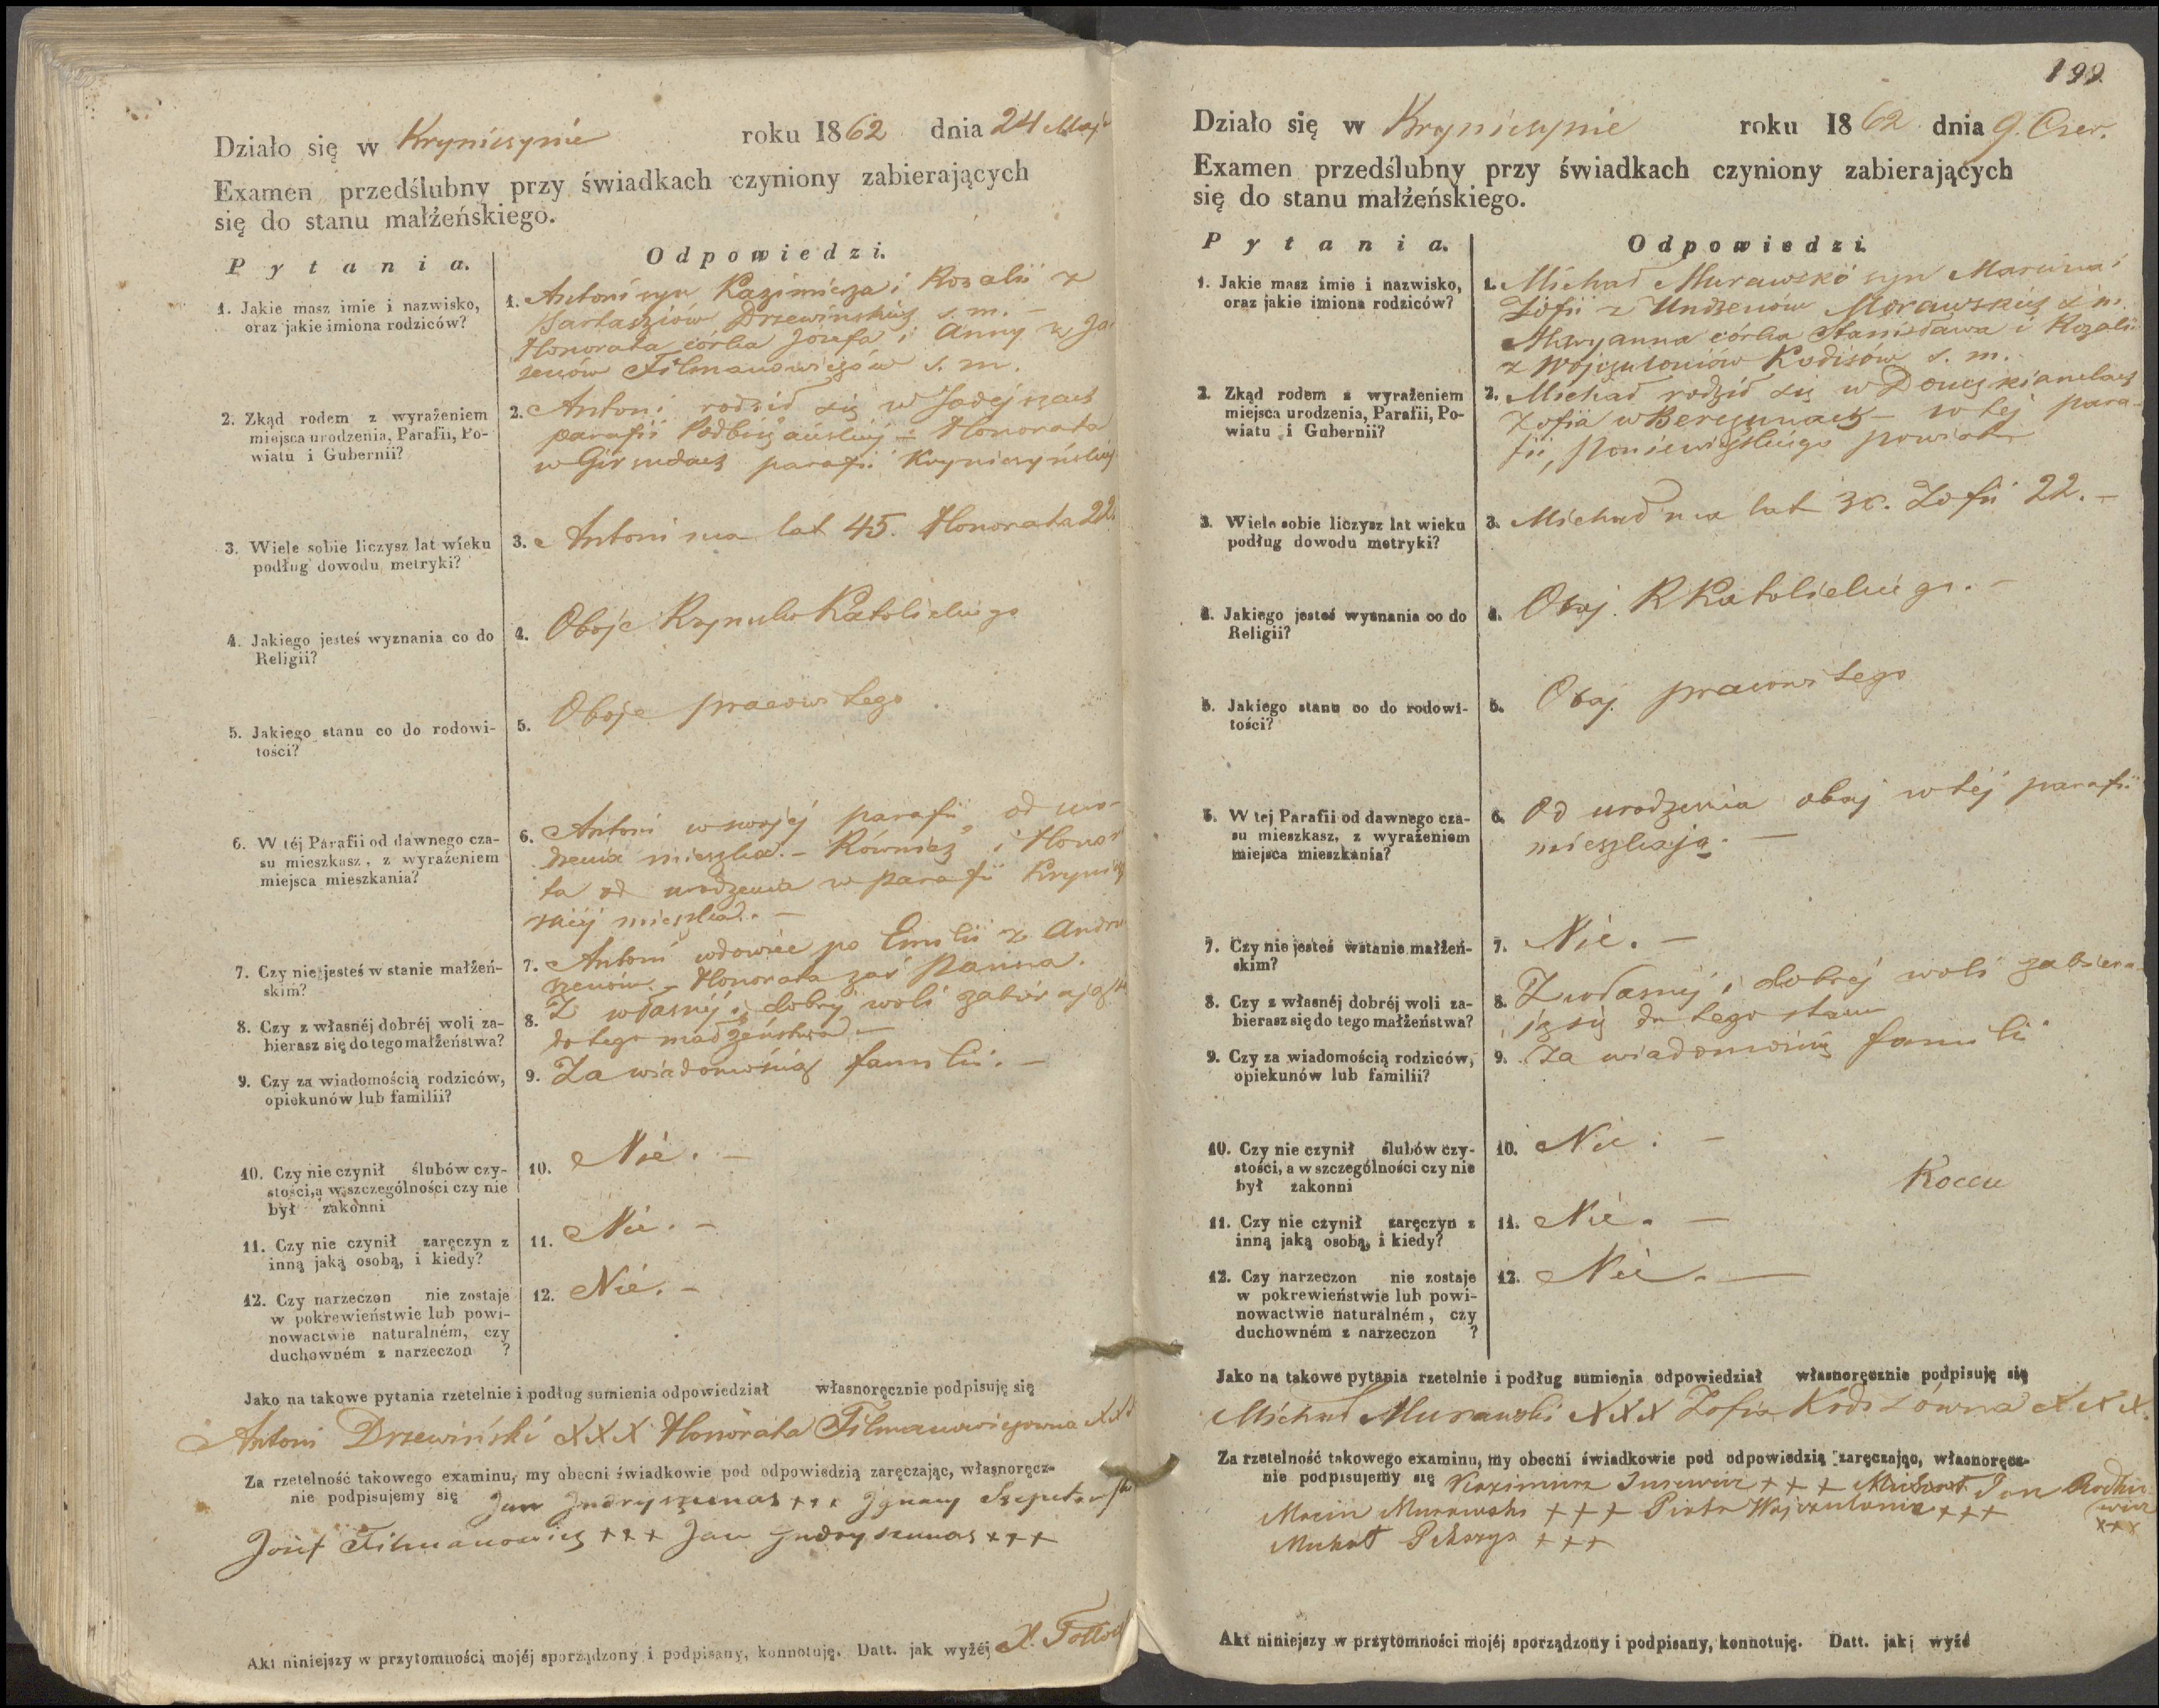 Działo się w Kryniczynie roku 1862 dnia 24 Maja
Examen przedślubny przy świadkach czyniony zabierających
się do stanu małżeńskiego.
Pytania. Odpowiedzi.
1. Jakie masz imie i nazwisko,
oraz jakie imiona rodziców?
1. Antoni syn Kazimierza i Rozalii z
Drzewińskich s. m. –
Honorata córka Józefa i Anny z
Filmanowiczów s. m.
2. Zkąd rodem z wyrażeniem
miejsca urodzenia, Parafii, Po-
wiatu i Gubernii?
2. Antoni rodził się w
parafii – Honorata
w parafii Kryniczyńskiej
3. Wiele sobie liczysz lat wieku
podług dowodu metryki?
3. Antoni ma lat 45. Honorata 22.
4. Jakiego jesteś wyznania co do
Religii?
4. Oboje Rzymsko Katolickiego
5. Jakiego stanu co do rodowi-
tości?
5. Oboje prawowitego
6. W téj Parafii od dawnego cza-
su mieszkasz, z wyrażeniem
miejsca mieszkania?
6. Antoni w swojéj parafii od uro-
dzenia mieszka. – Również i Honor
ta od urodzenia w parafii
mieszka. –
7. Czy nie jesteś w stanie małżeń-
skim?
7. Antoni wdowiec po Emilii z
– Honorata zaś Panna.
8. Czy z własnéj dobréj woli za-
bierasz się do tego małżeństwa?
8. Z własnéj i dobréj woli
do tego małżeństwa –
9. Czy za wiadomością rodziców,
opiekunów lub familii?
9. Za wiadomością familii. –
10. Czy nie czynił ślubów czy-
stości, a w szczególności czy nie
był zakonni
10. Nié. –
11. Czy nie czynił zaręczyn z
inną jaką osobą, i kiedy?
11. Nié. –
12. Czy narzeczon nie zostaje
w pokrewieństwie lub powi-
nowactwie naturalném, czy
duchowném z narzeczon ?
12. Nié. –
Jako na takowe pytania rzetelnie i podług sumienia odpowiedział własnoręcznie podpisuję się
Antoni Drzewiński XXX Honorata Filmanowiczowna XXX
Za rzetelność takowego examinu, my obecni świadkowie pod odpowiedzią zaręczając, własnoręcz-
nie podpisujemy się Jan Indryszunas +++ Ignacy
Józef Filmanowicz +++ Jan Indryszunas +++
Akt niniejszy w przytomności mojéj sporządzony i podpisany, konnotuję. Datt. jak wyżéj X.
199.
Działo się w Kryniczynie roku 1862 dnia 9. Czer.
Examen przedślubny przy świadkach czyniony zabierających
się do stanu małżeńskiego.
Pytania. Odpowiedzi.
1. Jakie masz imie i nazwisko,
oraz jakie imiona rodziców?
1. Michał Murawski syn Marcina i
Zofii z Undzenów Morawskich s. m.
Maryanna córka Stanisława i Rozalii
z Wojczuloniów Kodisów s. m.
2. Zkąd rodem z wyrażeniem
miejsca urodzenia, Parafii, Po-
wiatu i Gubernii?
2. Michał rodził się w
Zofia w – w tej para-
fii, Poniewiezkiego powiatu
3. Wiele sobie liczysz lat wieku
podług dowodu metryki?
3. Michał ma lat Zofii 22. –
4. Jakiego jesteś wyznania co do
Religii?
4. Obaj. R Katolickiego. –
5. Jakiego stanu co do rodowi-
tości?
5. Obaj. prawowitego
6. W tej Parafii od dawnego cza-
su mieszkasz, z wyrażeniem
miejsca mieszkania?
6. Od urodzenia obaj w téj parafii
mieszkają. –
7. Czy nie jesteś w stanie małżeń-
skim?
7. Nié. –
8. Czy z własnéj dobréj woli za-
bierasz się do tego małżeństwa?
8. Z własnéj i dobréj woli zabiera-
ją się do tego stanu
9. Czy za wiadomością rodziców,
opiekunów lub familii?
9. Za wiadomością familii
10. Czy nie czynił ślubów czy-
stości, a w szczególności czy nie
był zakonni
10. Nié. –
11. Czy nie czynił zaręczyn z
inną jaką osobą, i kiedy?
11. Nié. –
12. Czy narzeczon nie zostaje
w pokrewieństwie lub powi-
nowactwie naturalném, czy
duchowném z narzeczon ?
12. Nié. –
Jako na takowe pytania rzetelnie i podług sumienia odpowiedział własnoręcznie podpisuję się
Michał Murawski XXX Zofia Kodisówna XXX.
Za rzetelność takowego examinu, my obecni świadkowie pod odpowiedzią zaręczając, własnoręcz-
nie podpisujemy się Kazimierz Jurewicz +++ Jan
Marcin Murawski +++ Piotr Wojczulanis +++
Michał +++
Akt niniejszy w przytomności mojéj sporządzony i podpisany, konnotuję. Datt. jak wyżé